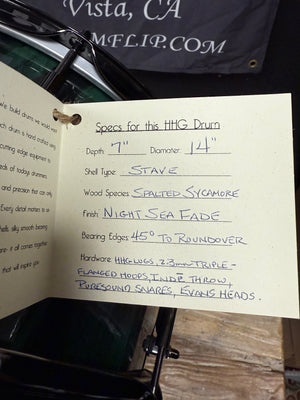 Vista, CA
MFLIP.COM
We build drums we would want
ach drum is hand crafted using
cutting edge equipment to
eeds of todays drummers.
and precision that can only
Every detail matters to an
shells, silky smooth bearing
are- it all comes together
that will inspire you!
Specs for this HHG Drum
Depth: 7" Diameter: 14"
Shell Type: STAVE
Wood Species: SPALTED SYCAMORE
Finish: NIGHT SEA FADE
Bearing Edges: 45° TO ROUNDOVER
Hardware: HHG LUGS, 2.3mm TRIPLE-
FLANGED HOOPS, INDE THROW,
PURESOUND SNARES, EVANS HEADS.